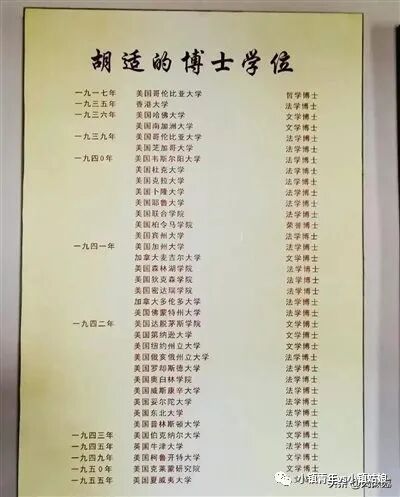 胡适的博士学位
一九一七年 美国哥伦比亚大学 哲学博士
一九三五年 香港大学 法学博士
一九三六年 美国哈佛大学 文学博士
美国南加洲大学 文学博士
一九三九年 美国哥伦比亚大学 法学博士
美国芝加哥大学 法学博士
一九四0年 美国韦斯尔阳大学 法学博士
美国杜克大学 法学博士
美国克拉大学 法学博士
美国卜隆大学 法学博士
美国耶鲁大学 法学博士
美国联合学院 法学博士
美国柏令马学院 荣誉博士
美国宾州大学 法学博士
一九四一年 美国加州大学 法学博士
加拿大麦吉尔大学 文学博士
美国森林湖学院 法学博士
美国狄克森学院 法学博士
美国密达瑞学院 法学博士
加拿大多伦多大学 法学博士
美国佛蒙特州大学 法学博士
一九四二年 美国达脱茅斯学院 文学博士
美国第纳逊大学 文学博士
美国纽约州立大学 文学博士
美国俄亥俄州立大学 法学博士
美国罗却斯德大学 法学博士
美国奥白林学院 法学博士
美国威斯康辛大学 法学博士
美国妥尔陀大学 法学博士
美国东北大学 法学博士
美国普林斯顿大学 法学博士
一九四三年 美国伯克纳尔大学 文学博士
一九四五年 英国牛津大学 法学博士
一九四九年 美国柯鲁开特大学 文学博士
一九五0年 美国克莱蒙研究院 文学博士
一九五五年 美国夏威夷大学
小镇青年vs小镇姑娘
头条